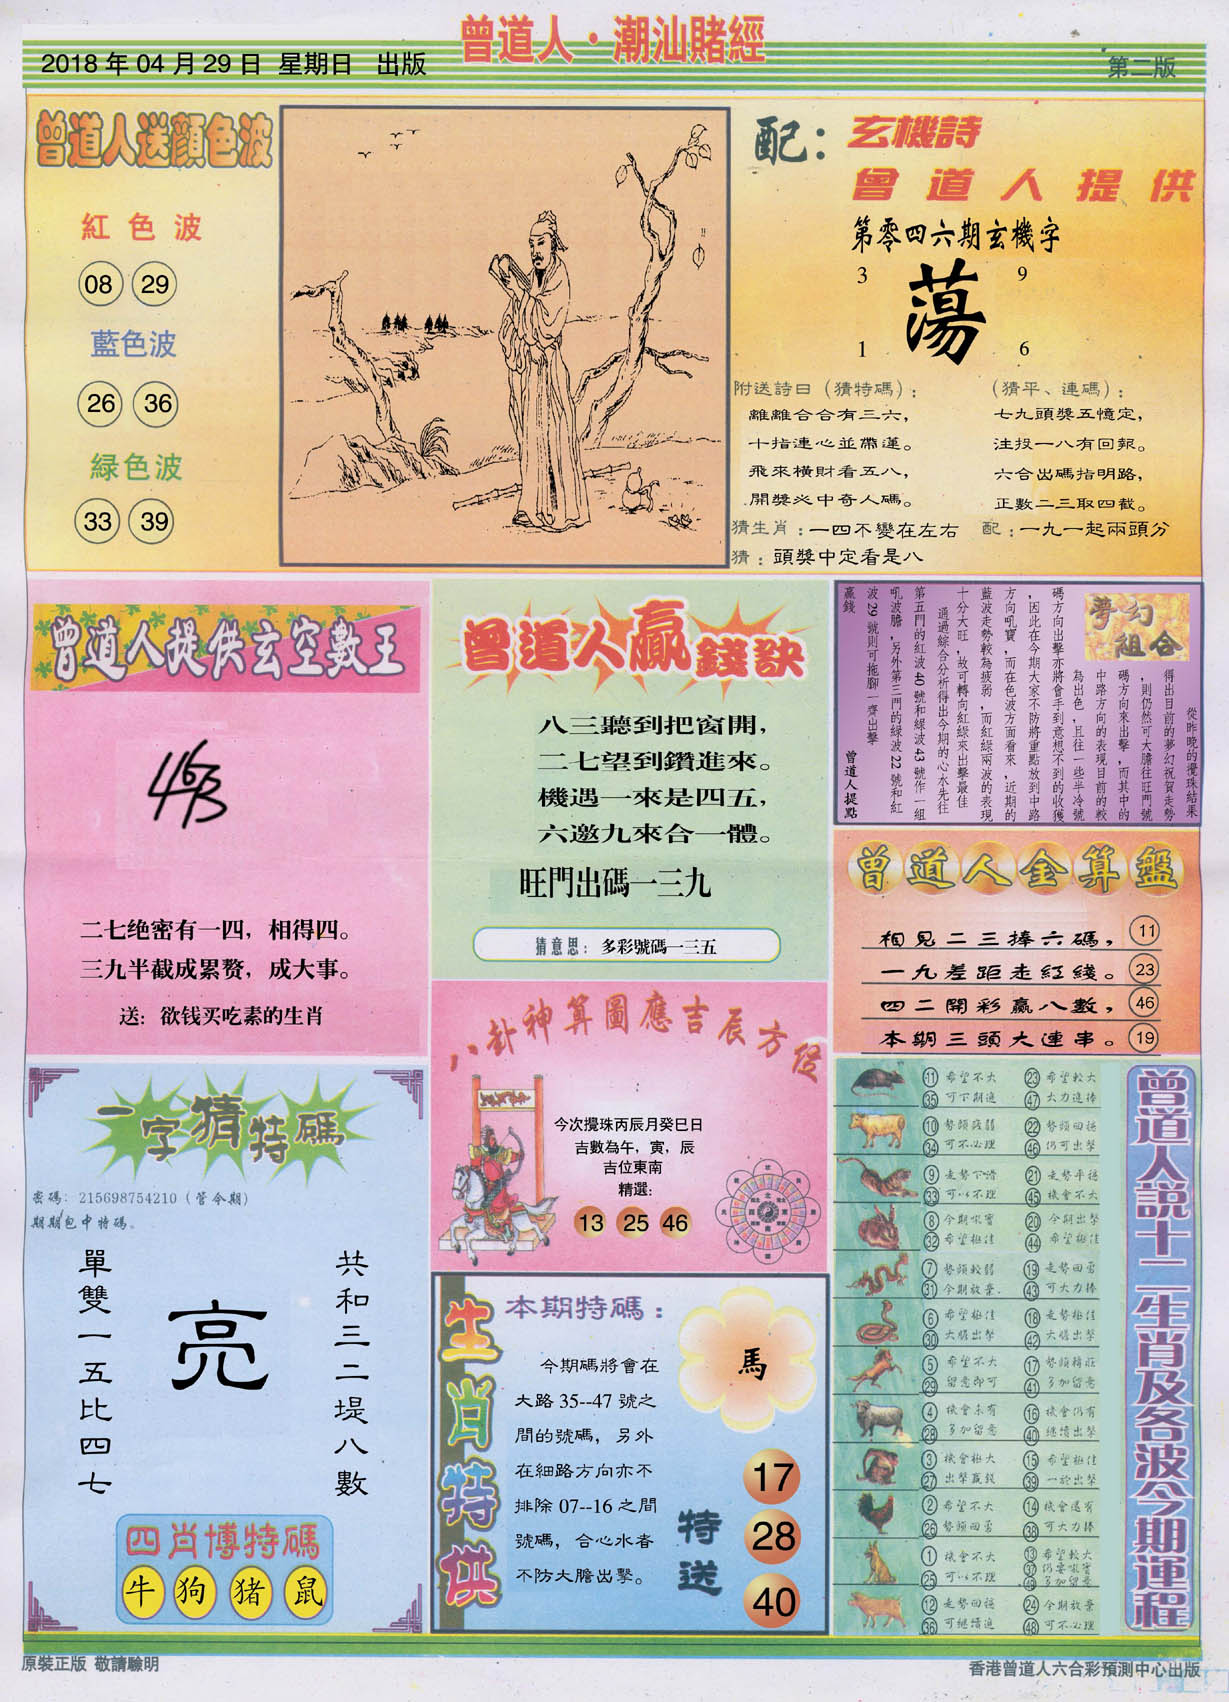 曾道人·潮汕賭經
2018年04月29日 星期日 出版
第二版
曾道人送顏色波
紅色波
08 29
藍色波
26 36
緑色波
33 39
配：玄機詩
曾道人提供
第零四六期玄機字
3 9
蕩
1 6
附送詩曰（猜特碼）：
離離合合有三六，
十指連心並帶運。
飛來橫財看五八，
開獎必中奇人碼。
（猜平、連碼）：
七九頭獎五憶定，
注投一八有回報。
六合出碼指明路，
正數二三取四截。
猜生肖：一四不變在左右
配：一九一起兩頭分
猜：頭獎中定看是八
曾道人提供玄空數王
463
二七绝密有一四，相得四。
三九半截成累赘，成大事。
送：欲钱买吃素的生肖
曾道人贏錢訣
八三聽到把窗開，
二七望到鑽進來。
機遇一來是四五，
六邀九來合一體。
旺門出碼一三九
猜意思：多彩號碼一三五
夢幻組合
從昨晚的攪珠結果
得出目前的夢幻祝賀走勢
，則仍然可大膽往旺門號
碼方向來出擊，而其中的
中路方向的表現目前的較
為出色，且往一些半冷號
碼方向出擊亦將會手到意想不到的收獲
，因此在今期大家不防將重點放到中路
方向吼寶，而在色波方面看來，近期的
藍波走勢較為疲弱，而紅綠兩波的表現
十分大旺，故可轉向紅綠來出擊最佳
通過綜合分析得出今期的心水先往
第五門的紅波40號和綠波43號作一組
吼波膽，另外第三門的綠波22號和紅
波29號則可拖腳一齊出擊
贏錢
曾道人提點
曾道人金算盤
相見二三捧六碼， 11
一九差距走紅綫。 23
四二開彩贏八數， 46
本期三頭大連串。 19
八卦神算圖應吉辰方位
今次攪珠丙辰月癸巳日
吉數為午，寅，辰
吉位東南
精選：
13 25 46
一字猜特碼
密碼：215698754210（管今期）
期期包中特碼。
單雙一五比四七
亮
共和三二堤八數
四肖博特碼
牛 狗 猪 鼠
生肖特供
本期特碼：
今期碼將會在
大路35--47號之
間的號碼，另外
在細路方向亦不
排除07--16之間
號碼，合心水者
不防大膽出擊。
馬
特送
17
28
40
曾道人説十二生肖及各波今期運程
11 希望不大 23 希望較大
35 可下期進 47 大力進捧
10 勢頭疲弱 22 勢頭回穩
34 可不必理 46 仍可出擊
9 走勢下滑 21 走勢平穩
33 可以不理 45 機會不大
8 今期吼寶 20 今期出擊
32 希望極佳 44 希望極佳
7 勢頭較弱 19 走勢回勇
31 今期放棄 43 可大力捧
6 希望極佳 18 走勢極佳
30 大膽出擊 42 大膽出擊
5 希望不大 17 勢頭轉旺
29 留意即可 41 多加留意
4 機會未有 16 機會仍有
28 多加留意 40 繼續出擊
3 機會極大 15 希望極佳
27 出擊贏錢 39 一於出擊
2 希望不大 14 機會還有
26 勢頭回勇 38 可大力捧
1 機會不大 13 希望較大
37 仍要吼寶
25 可以不理 49 多加留意
12 走勢回穩 24 今期放棄
36 可繼續追 48 可不必理
原裝正版 敬請驗明
香港曾道人六合彩預測中心出版